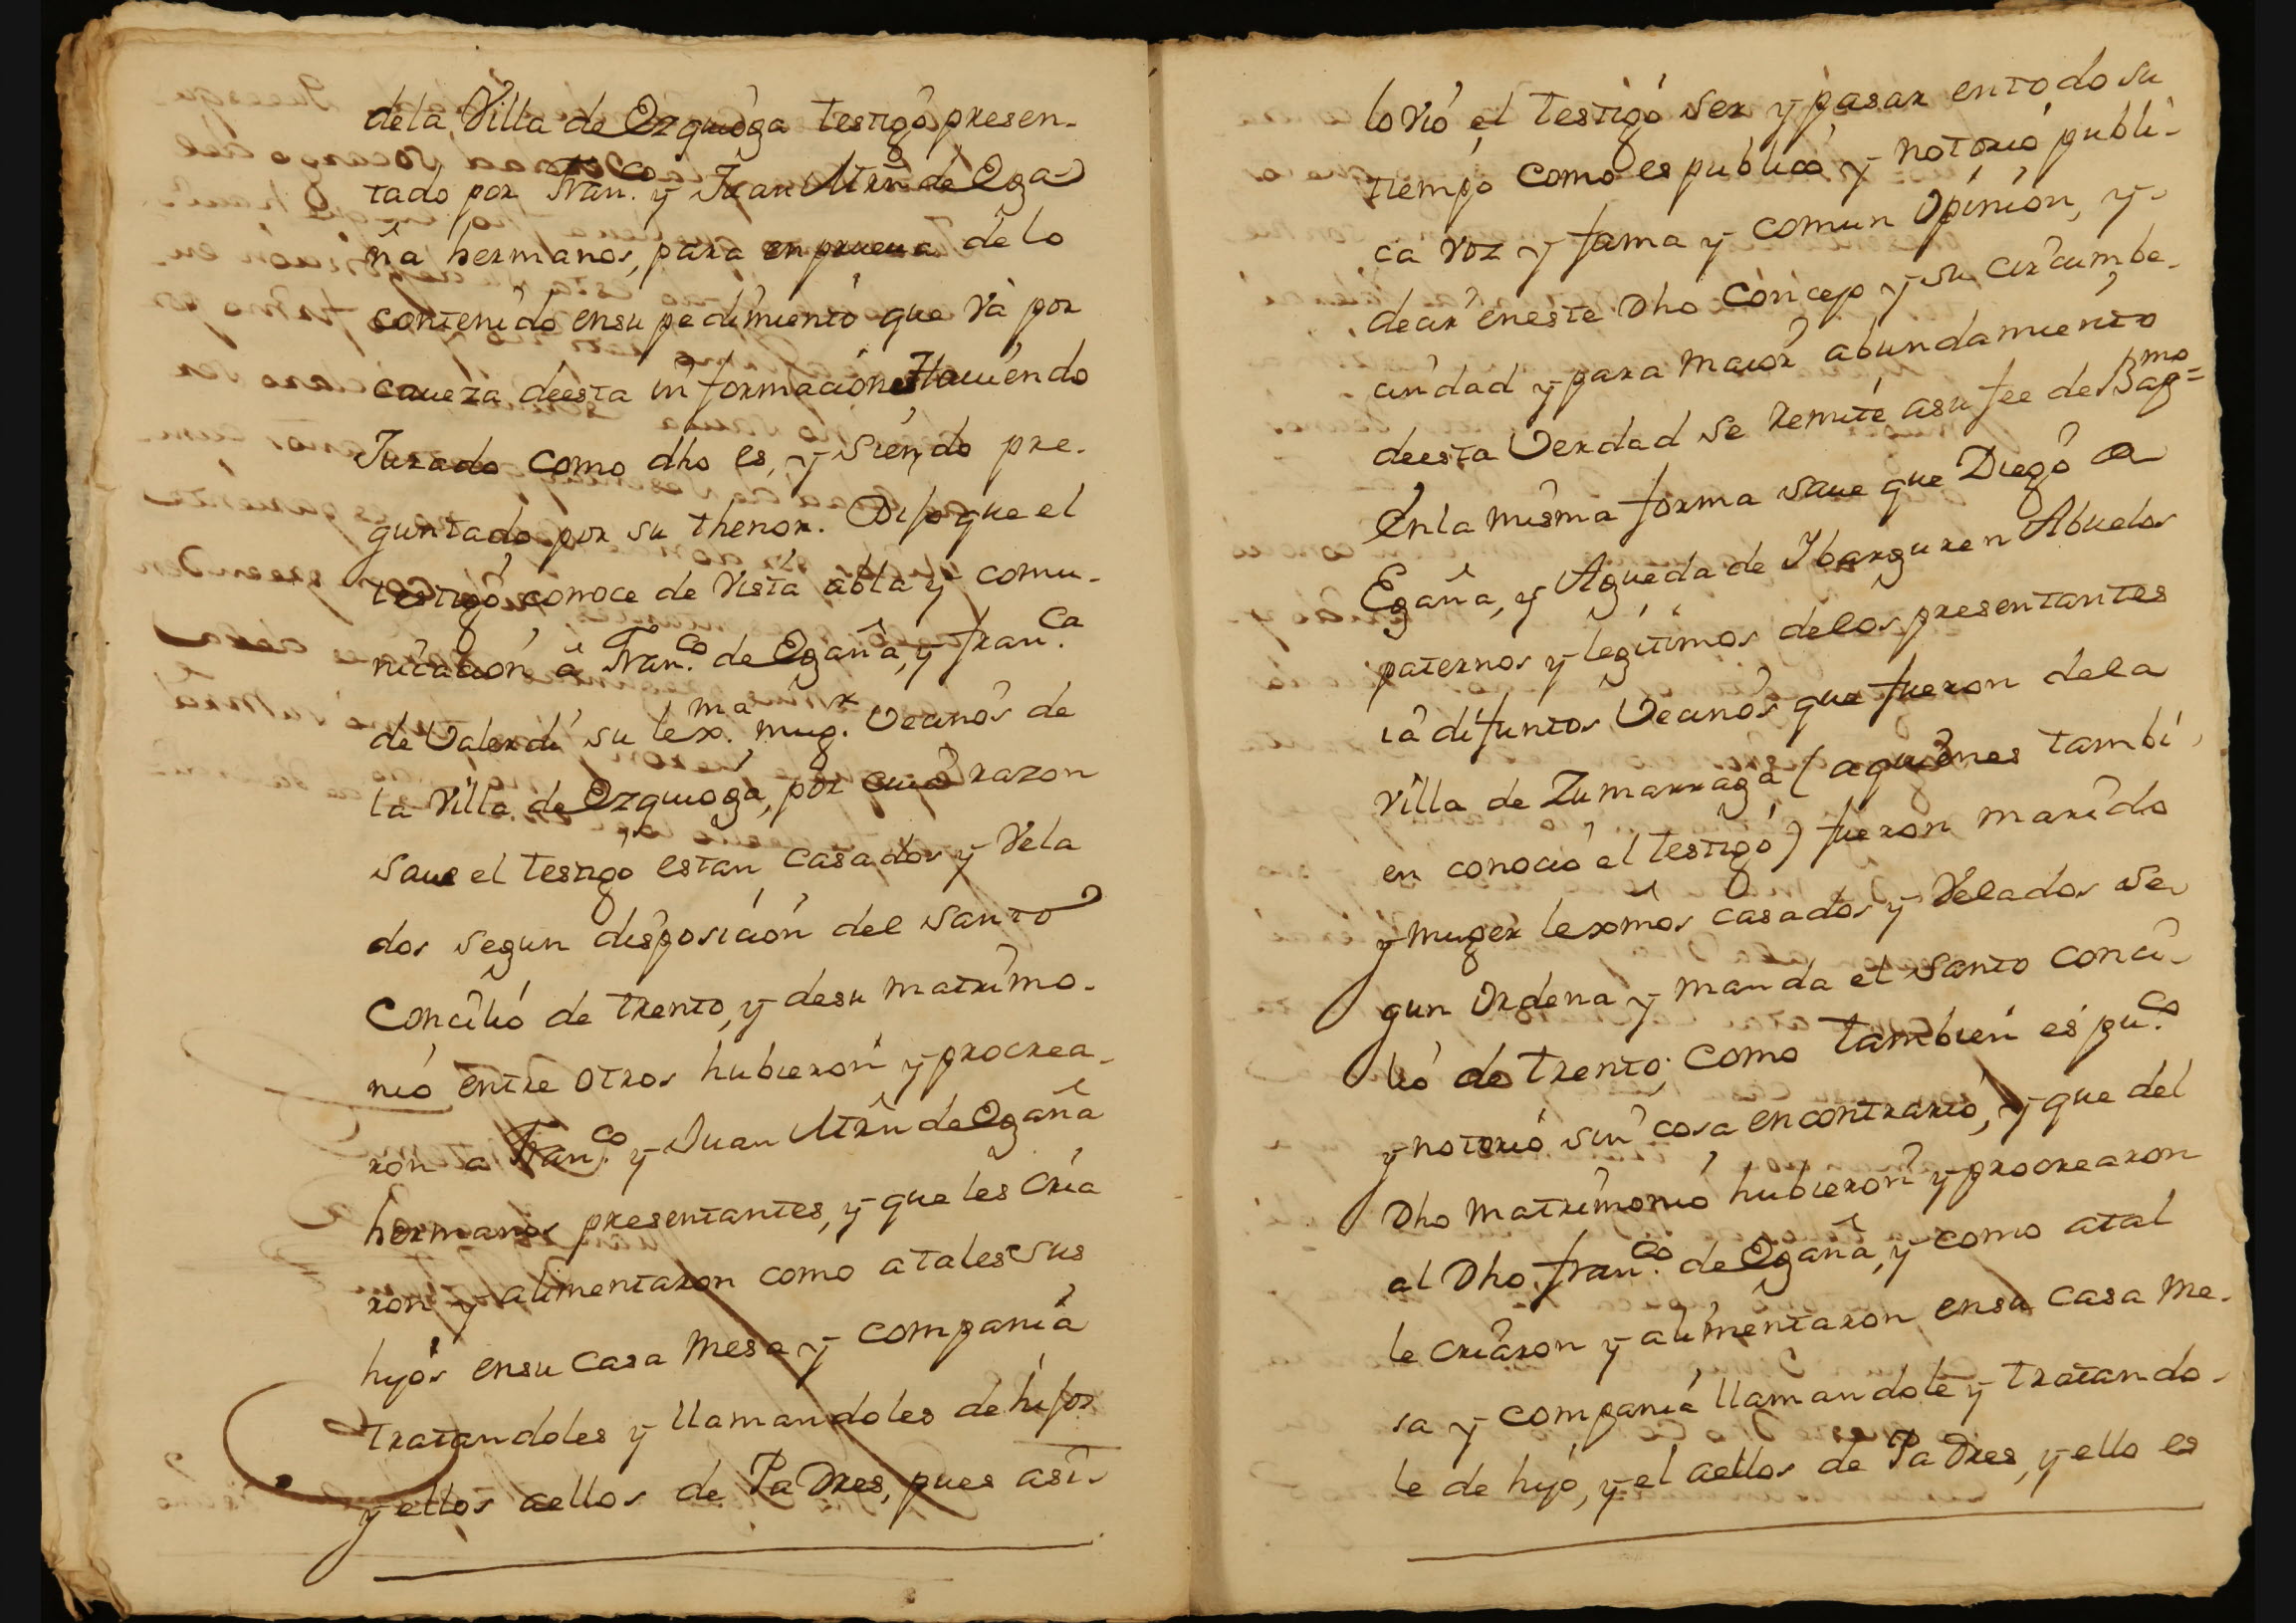 dela Villa de Ezquioga testigo presen-
tado por Fran.co y Juan Mrñ de Ega-
ña hermanos, para en prueua de lo
contenido ensu pedimiento que va por
caueza deesta informacion Hauiendo
Jurado como dho es, y siendo pre-
guntado por su thenor. Dijo que el
testigo conoce de vista abla y comu-
nicacion â Fran.co de Egaña, y fran.ca
de Valerdi su lex.ma mug.r Vecinos de
la Villa de Ezquioga, por cuia razon
saue el testigo estan casados y Vela
dos segun disposicion del santo
Concilio de trento, y desu matrimo-
nio entre otros hubieron y procrea-
ron a Fran.co y Juan Mrñ de Egaña
hermanos presentantes, y que les Cria
ron y alimentaron como atales sus
hijos ensu Casa Mesa y compania
tratandoles y llamandoles de hijos
y ellos aellos de Padres, pues asi-
lo vio el testigo ser y pasar entodo su
tiempo como es publico y notorio publi-
ca voz y fama y comun Opinion, y-
decir eneste Dho concejo y su circumbe-
cindad y para maior abundamiento
deesta Verdad se remite asu fee de Bap=mo
En la misma forma saue que Diego de
Egaña, y Agueda de Ybarguren Abuelos
paternos y legitimos delos presentantes
ia difuntos Vecinos que fueron dela
Villa de Zumarraga (aquienes tambi-
en conocio el testigo) fueron marido
y muger lexmos casados y Velados se-
gun Ordena y manda el Santo Conci-
lio de trento; como tambien es pu.co
y notorio sin cosa encontrario, y que del
Dho matrimonio hubieron y procrearon
al Dho fran.co de Egaña, y como atal
le criaron y alimentaron ensu casa me-
sa y compania llamandole y tratando-
le de hijo, y el aellos de Padres, y ello es